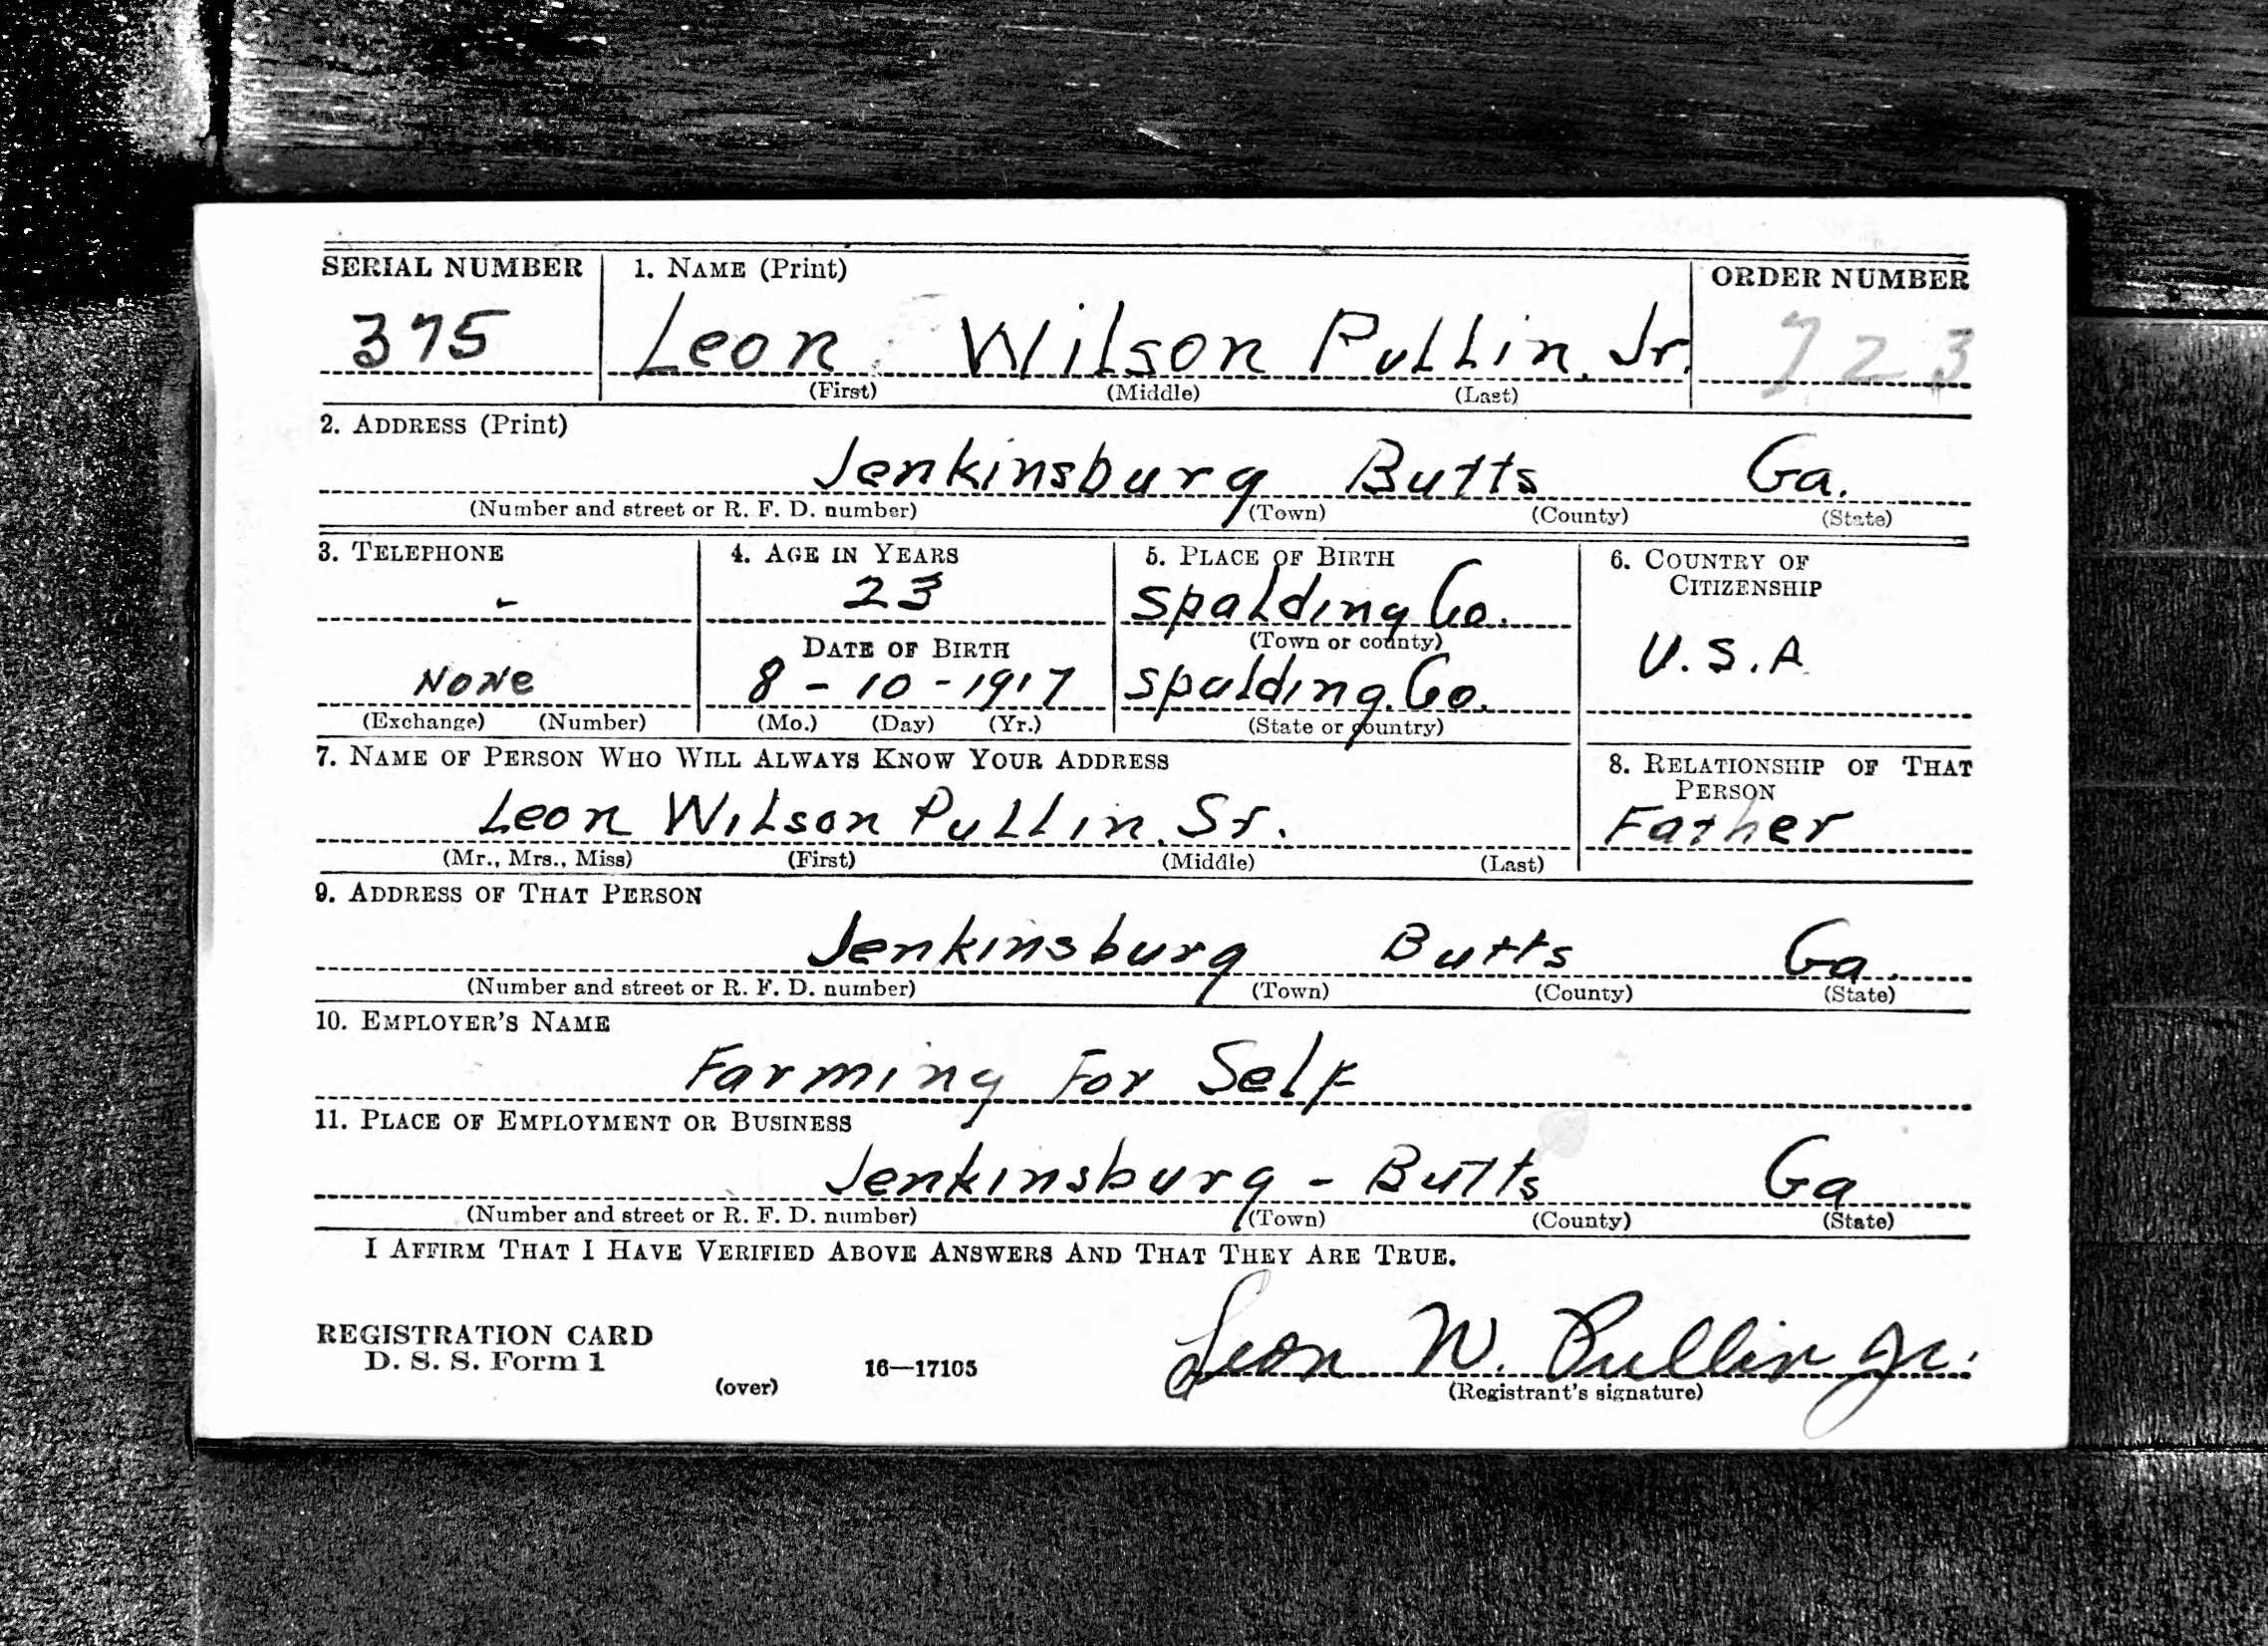 SERIAL NUMBER 1. NAME (Print) ORDER NUMBER
375 Leon Wilson Pullin, Jr. 723
(First) (Middle) (Last)
2. ADDRESS (Print)
Jenkinsburg Butts Ga.
(Number and street or R. F. D. number) (Town) (County) (State)
3. TELEPHONE 4. AGE IN YEARS 5. PLACE OF BIRTH 6. COUNTRY OF CITIZENSHIP
- 23 Spalding Co.
(Town or county)
DATE OF BIRTH U.S.A.
None 8 - 10 - 1917 Spalding. Co.
(Exchange) (Number) (Mo.) (Day) (Yr.) (State or country)
7. NAME OF PERSON WHO WILL ALWAYS KNOW YOUR ADDRESS 8. RELATIONSHIP OF THAT PERSON
Leon Wilson Pullin, Sr. Father
(Mr., Mrs., Miss) (First) (Middle) (Last)
9. ADDRESS OF THAT PERSON
Jenkinsburg Butts Ga.
(Number and street or R. F. D. number) (Town) (County) (State)
10. EMPLOYER'S NAME
Farming For Self
11. PLACE OF EMPLOYMENT OR BUSINESS
Jenkinsburg - Butts Ga
(Number and street or R. F. D. number) (Town) (County) (State)
I AFFIRM THAT I HAVE VERIFIED ABOVE ANSWERS AND THAT THEY ARE TRUE.
REGISTRATION CARD
D. S. S. Form 1 (over) 16—17105 Leon W. Pullin Jr.
(Registrant's signature)